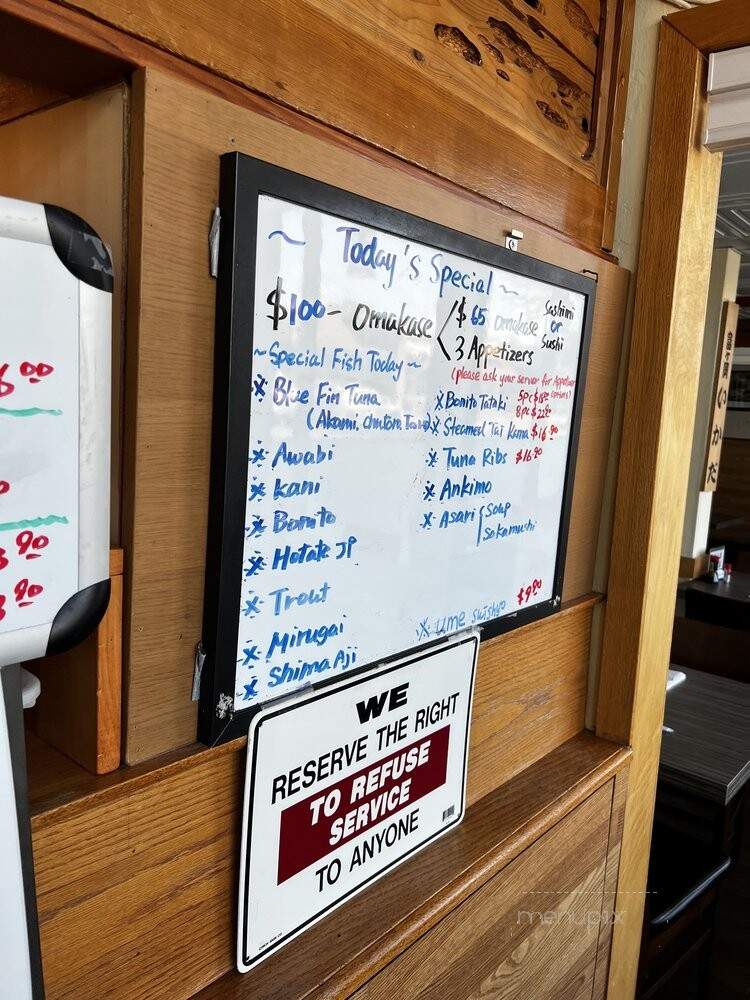 ~ Today's Special ~
$100- Omakase
$65 omakase
Sashimi or Sushi
3 Appetizers
(please ask your server for Appetizer options)
~Special Fish Today~
※ Blue Fin Tuna
(Akami, chutoro, Toro)
※ Awabi
※ Kani
※ Bonito
※ Hotate JP
※ Trout
※ Mirugai
※ Shima Aji
※ Bonito Tataki 5pc
8pc
※ Steamed Tai Kama $16.90
※ Tuna Ribs $16.90
※ Ankimo
※ Asari { Soup
Sakamushi
$9.90
※ ume
WE
RESERVE THE RIGHT
TO REFUSE
SERVICE
TO ANYONE
いかだ
menupix